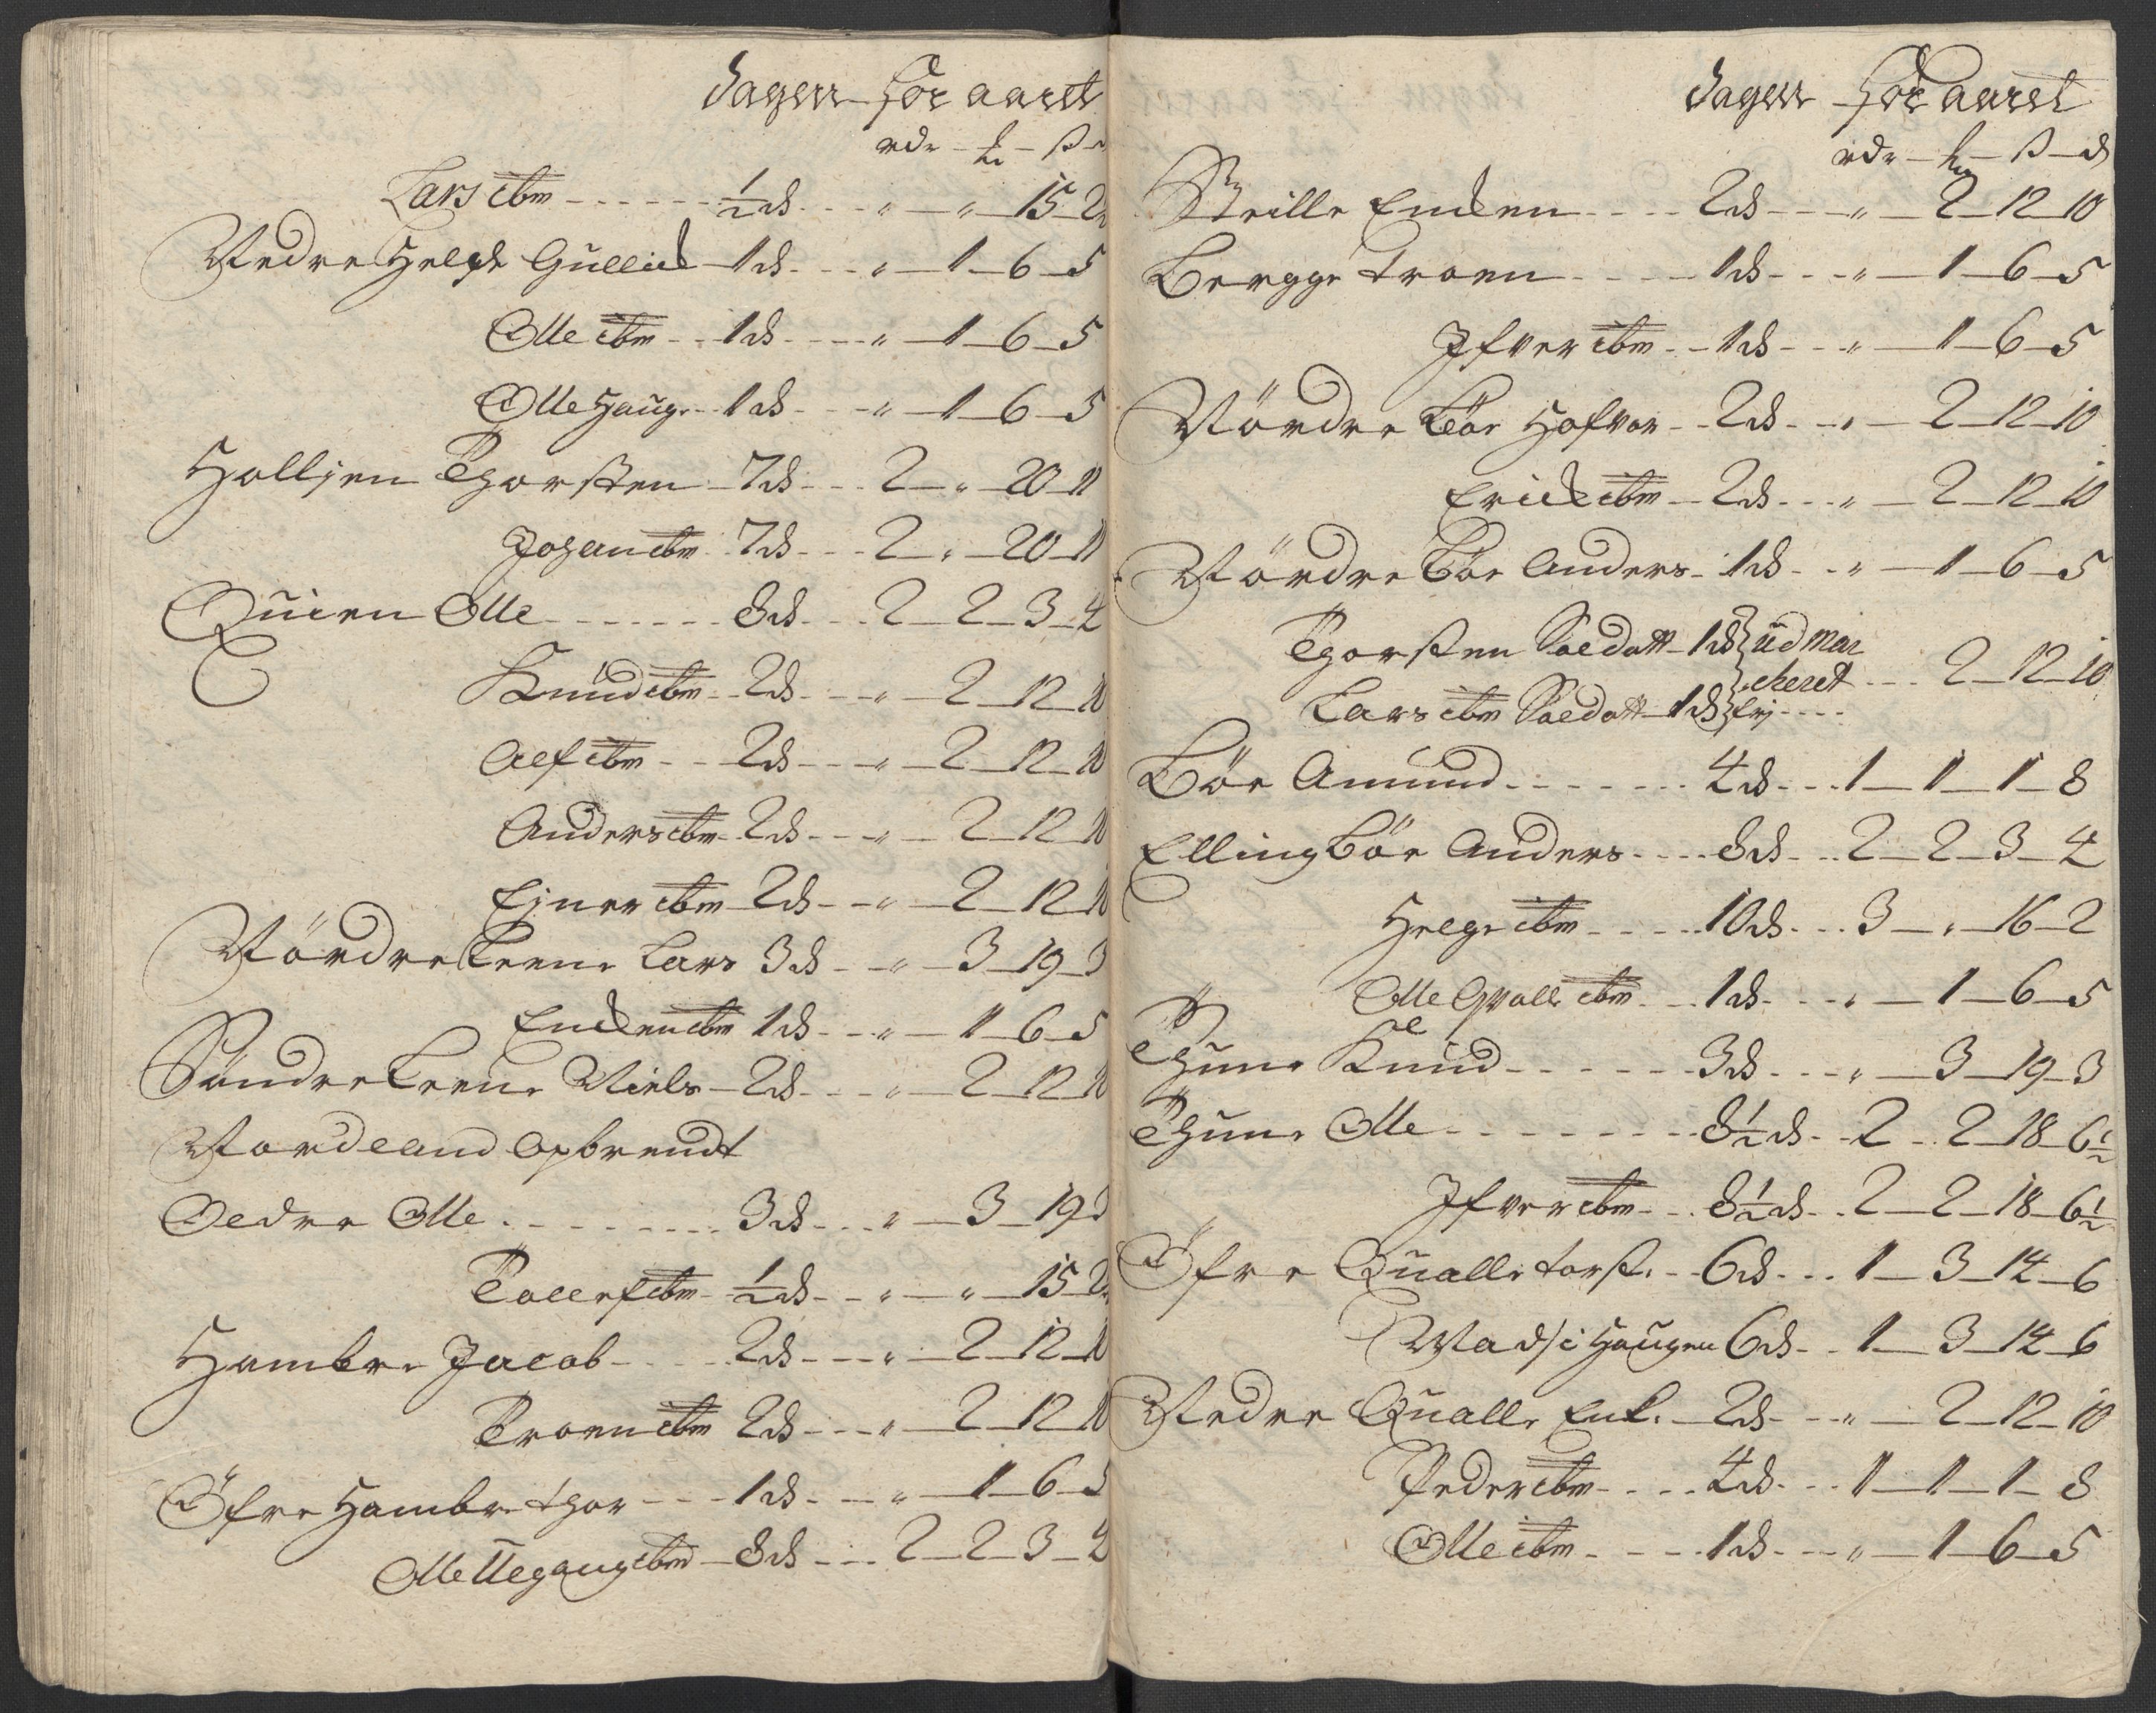 dagen for aaret
rdr – – ß – d
Lars ibm – – – ½ d – – „ – „ – 15 – 2
Nedre Helge Gullich 1 d – – „ – 1 – 6 – 5
Olle ibm – – 1 d – – „ – 1 – 6 – 5
Olle Haug – – 1 d – – „ – 1 – 6 – 5
Thorsten – 7 d – – 2 – „ – 20 – 11
Johan ibm – 7 d – – 2 – „ – 20 – 11
Quien Olle – – – 8 d – – 2 – 2 – 3 – 4
Knud ibm – 2 d – – „ – 2 – 12 – 10
Alf ibm – – 2 d – – „ – 2 – 12 – 10
Anders ibm – 2 d – – „ – 2 – 12 – 10
Ejner ibm – 2 d – – „ – 2 – 12 – 10
Nördre Leene Lars 3 d – – „ – 3 – 19 – 3
Encken ibm 1 d – – „ – 1 – 6 – 5
Söndre Leene Niels – 2 d – – „ – 2 – 12 – 10
Nordland opbrendt
Olle – – – 3 d – – „ – 3 – 19 – 3
Tollef ibm – ½ d – – „ – „ – 15 – 2
Hambre Jacob – – 2 d – – „ – 2 – 12 – 10
Troen ibm 2 d – – „ – 2 – 12 – 10
Öfre Hambre Thor – – 1 d – – „ – 1 – 6 – 5
Olle ibm – 8 d – – 2 – 2 – 3 – 4
dagen for aaret
rdr – – ß – d
Encken – – 2 d – – „ – 2 – 12 – 10
Bergge Troen – – – 1 d – – „ – 1 – 6 – 5
Ifver ibm – – 1 d – – „ – 1 – 6 – 5
Nördre Böe Hafvor – – 2 d – – „ – 2 – 12 – 10
Erick ibm – – 2 d – – „ – 2 – 12 – 10
Nördre Böe Anders – 1 d – – „ – 1 – 6 – 5
Thorsten Soldatt – 1 d } udmar
cheret – – 2 – 12 – 10
Lars ibm Soldatt – 1 d } frj – –
Böe Amund – – – 4 d – – 1 – 1 – 1 – 8
Elling Böe Anders – – 8 d – – 2 – 2 – 3 – 4
Helge ibm – – – 10 d – – 3 – „ – 16 – 2
Olle Qvalle ibm – – 1 d – – „ – 1 – 6 – 5
Thune Knud – – – 3 d – – „ – 3 – 19 – 3
Thune Olle – – – 8½ d – – 2 – 2 – 18 – 6½
Ifver ibm – – 8½ d – – 2 – 2 – 18 – 6½
Öfre Qualle Torst. – – 6 d – – 1 – 3 – 14 – 6
Mads i Haugen 6 d – – 1 – 3 – 14 – 6
Nedre Qualle Enk. – 2 d – – „ – 2 – 12 – 10
Peder ibm – – 4 d – – 1 – 1 – 1 – 8
Olle ibm – – – 1 d – – „ – 1 – 6 – 5